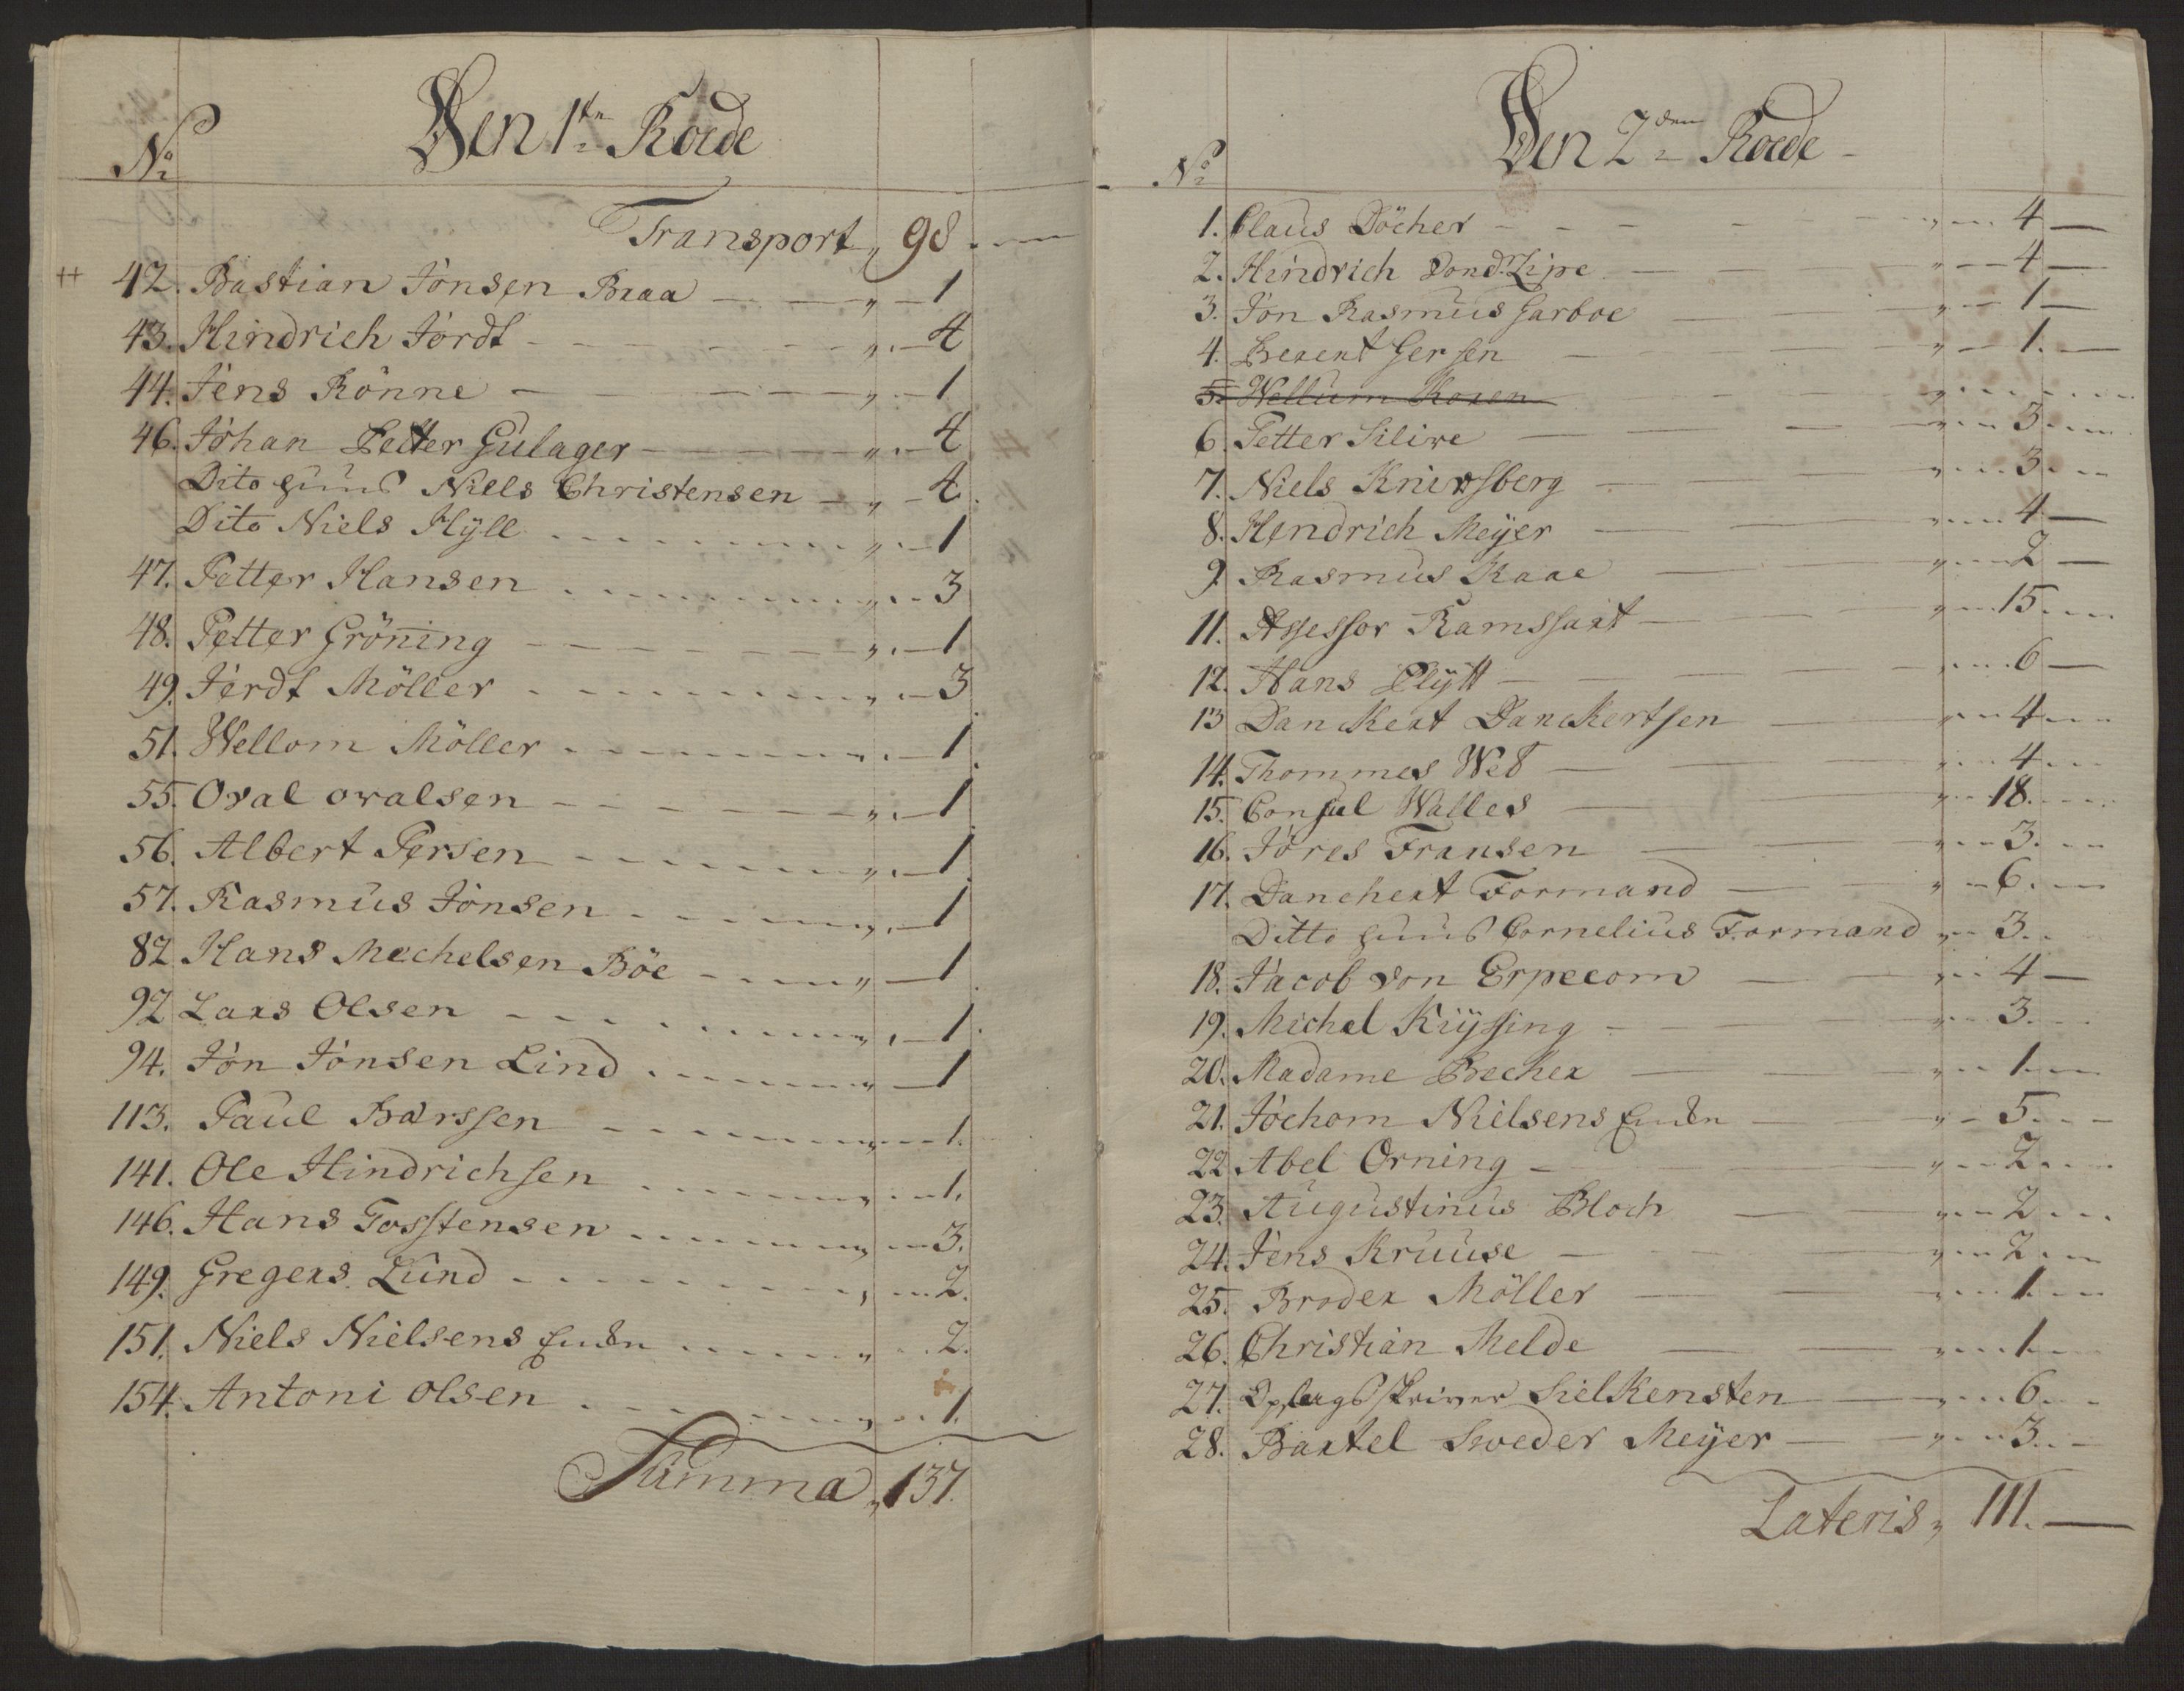 No
Den 1te Roede
Transport „ 98. -
++ 42. Bastian Jönsen Braa - - „ - 1
43. Hindrich Jördt - - „ - 4
44. Jens Rönne - - „ - 1
46. Johan Peiter Gulager - - „ - 4
Dito huus Niels Christensen - „ - 4.
Dito Niels Hÿll - - „ - 1
47. Petter Hansen - - „ - 3
48. Petter Gröning - - „ - 1
49. Jerdt Möller - - „ - 3
51. Wellom Möller - - „ - 1
55. Oval ovalsen - - „ - 1
56. Albert Persen - - „ - 1
57. Rasmus Jonsen - - „ - 1
82 Hans Mechelsen Böe - - „ - 1
92 Lars Olsen - - „ - 1
94. Jon Jonsen Lind - - „ - 1
113. Paul Barssen - - „ - 1.
141. Ole Hindrichsen - - „ - 1.
146. Hans Tosstensen - - „ - 3.
149. Gregers Lund - - „ - 2.
151. Niels Nielsens Encke - - „ - 2.
154. Antoni olsen - - „ - 1.
Summa „ 137.
No
Den 2den Roede -
1. Claus Döcher - - „ - 4 -
2. Hindrich Vond. Lipe - - „ - 4 -
3. Jon Rasmus Garboe - - „ - 1 -
4. Berent Gersen - - „ - 1. -
5. Wellum Koren - - „ - -
6. Petter Silire - - „ - 3 -
7. Niels Knirsberg - - „ - 3. -
8. Hendrich Meÿer - - „ - 4 -
9. Rasmus Kaae - - „ - 2 -
11. Assessor Ramssart - - „ - 15 -
12. Hans Plÿtt - - „ - 6 -
13 Danckert Danckertsen - - „ - 4 -
14. Thommes Web - - „ - 4 -
15. Consul Walles - - „ - 18. -
16. Jöres Fransen - - „ - 3. -
17. Danchert Formand - - „ - 6. -
Ditto huus Cornelius Formand „ - 3. -
18. Jacob von Erpecom - - „ - 4 -
19. Michel Küÿssing - - „ - 3. -
20. Madame Becher - - „ - 1 -
21. Jochom Nielsens Encke - - „ - 5. -
22 Abel Orning - - „ - 2 -
23. Augustinus Bloch - - „ - 2 -
24. Jens Kruuse - - „ - 2 -
25. Broder Möller - - „ - 1 -
26. Christian Melde - - „ - 1 -
27. Oplagsskriver Sielkensten - - „ - 6. -
28. Bartel Sweder Meÿer - - „ - 3. -
Lateris „ 111. -